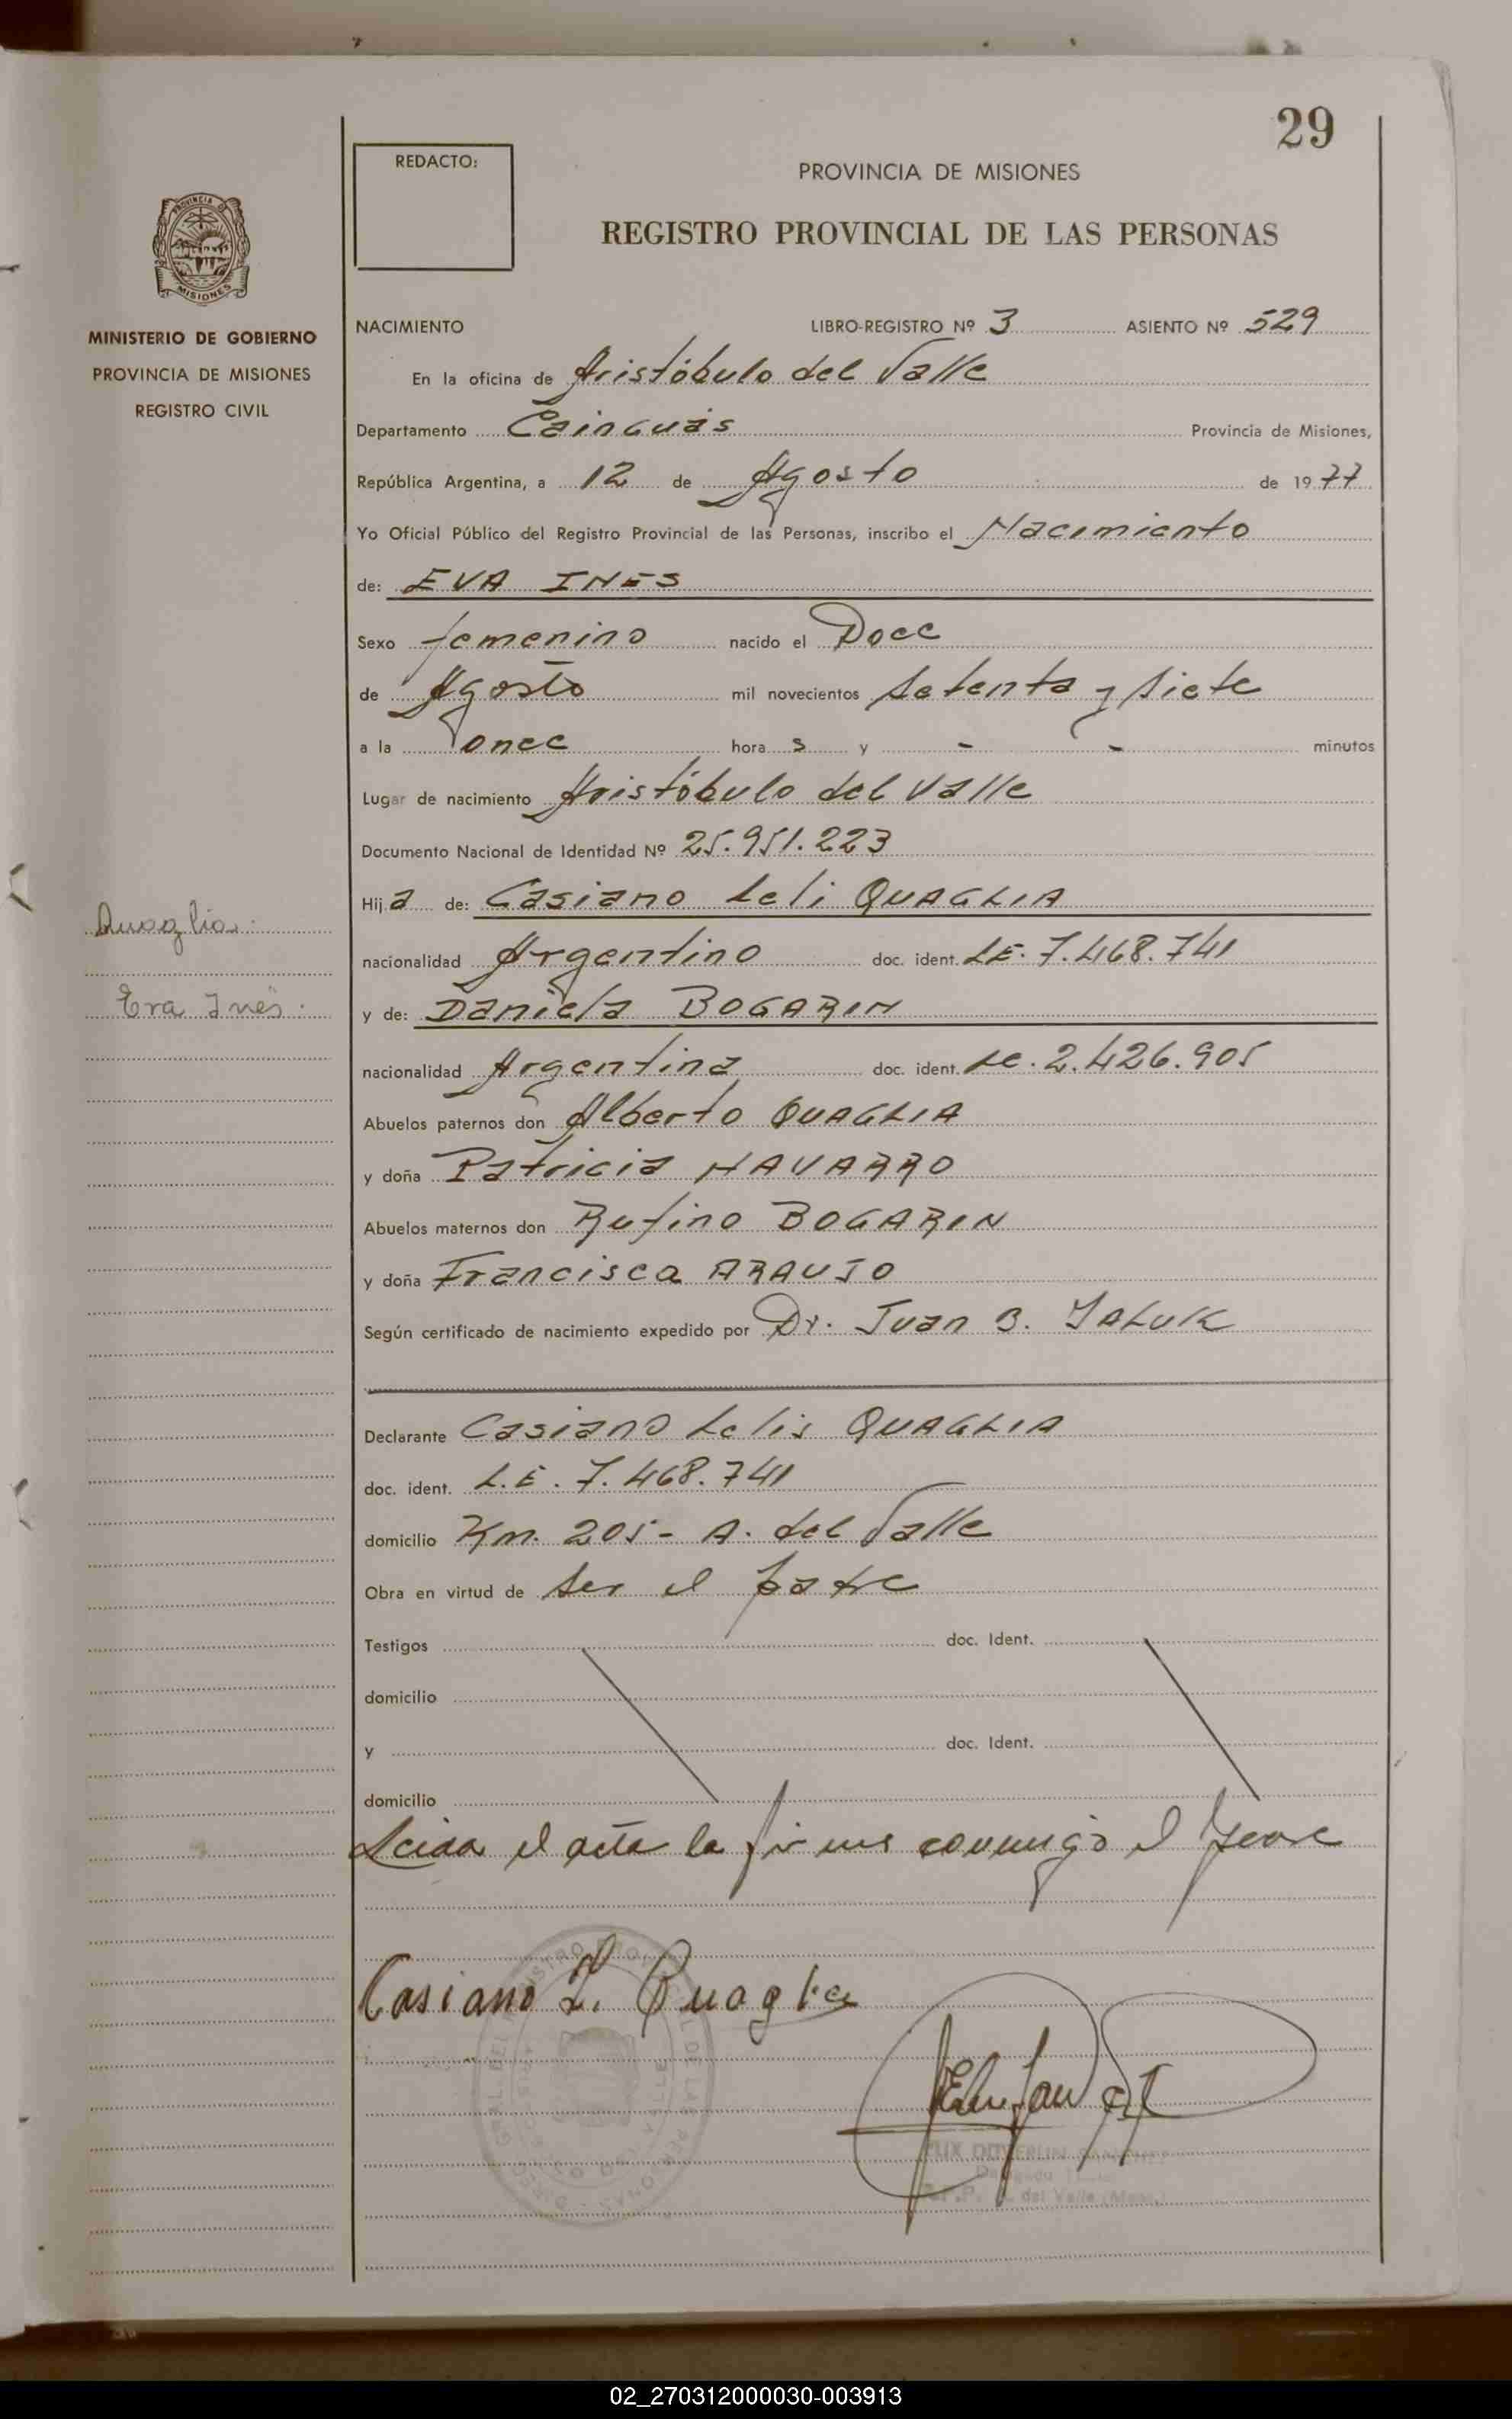 29
REDACTO:
PROVINCIA DE MISIONES
REGISTRO PROVINCIAL DE LAS PERSONAS
PROVINCIA DE
MISIONES
MINISTERIO DE GOBIERNO
PROVINCIA DE MISIONES
REGISTRO CIVIL
NACIMIENTO LIBRO-REGISTRO Nº 3 ASIENTO Nº 529
En la oficina de Aristóbulo del Valle
Departamento Cainguás Provincia de Misiones,
República Argentina, a 12 de Agosto de 1977
Yo Oficial Público del Registro Provincial de las Personas, inscribo el Nacimiento
de: EVA INES
Sexo femenino nacido el Doce
de Agosto mil novecientos setenta y siete
a la once hora s y - - minutos
Lugar de nacimiento Aristóbulo del Valle
Documento Nacional de Identidad Nº 25.951.223
Hija de: Casiano Leli QUAGLIA
Quaglia:
nacionalidad Argentino doc. ident. LE. 7.468.741
Eva Inés:
y de: Daniela BOGARIN
nacionalidad Argentina doc. ident. Lc. 2.426.905
Abuelos paternos don Alberto QUAGLIA
y doña Patricia NAVARRO
Abuelos maternos don Rufino BOGARIN
y doña Francisca ARAUJO
Según certificado de nacimiento expedido por Dr. Juan B. YALUK
Declarante Casiano Lelis QUAGLIA
doc. ident. L.E. 7.468.741
domicilio Km. 205- A. del Valle
Obra en virtud de ser el padre
Testigos doc. Ident.
domicilio
y doc. Ident.
domicilio
Leida el acta la firma conmigo el
Casiano L. Quaglia
del Valle
02_270312000030-003913